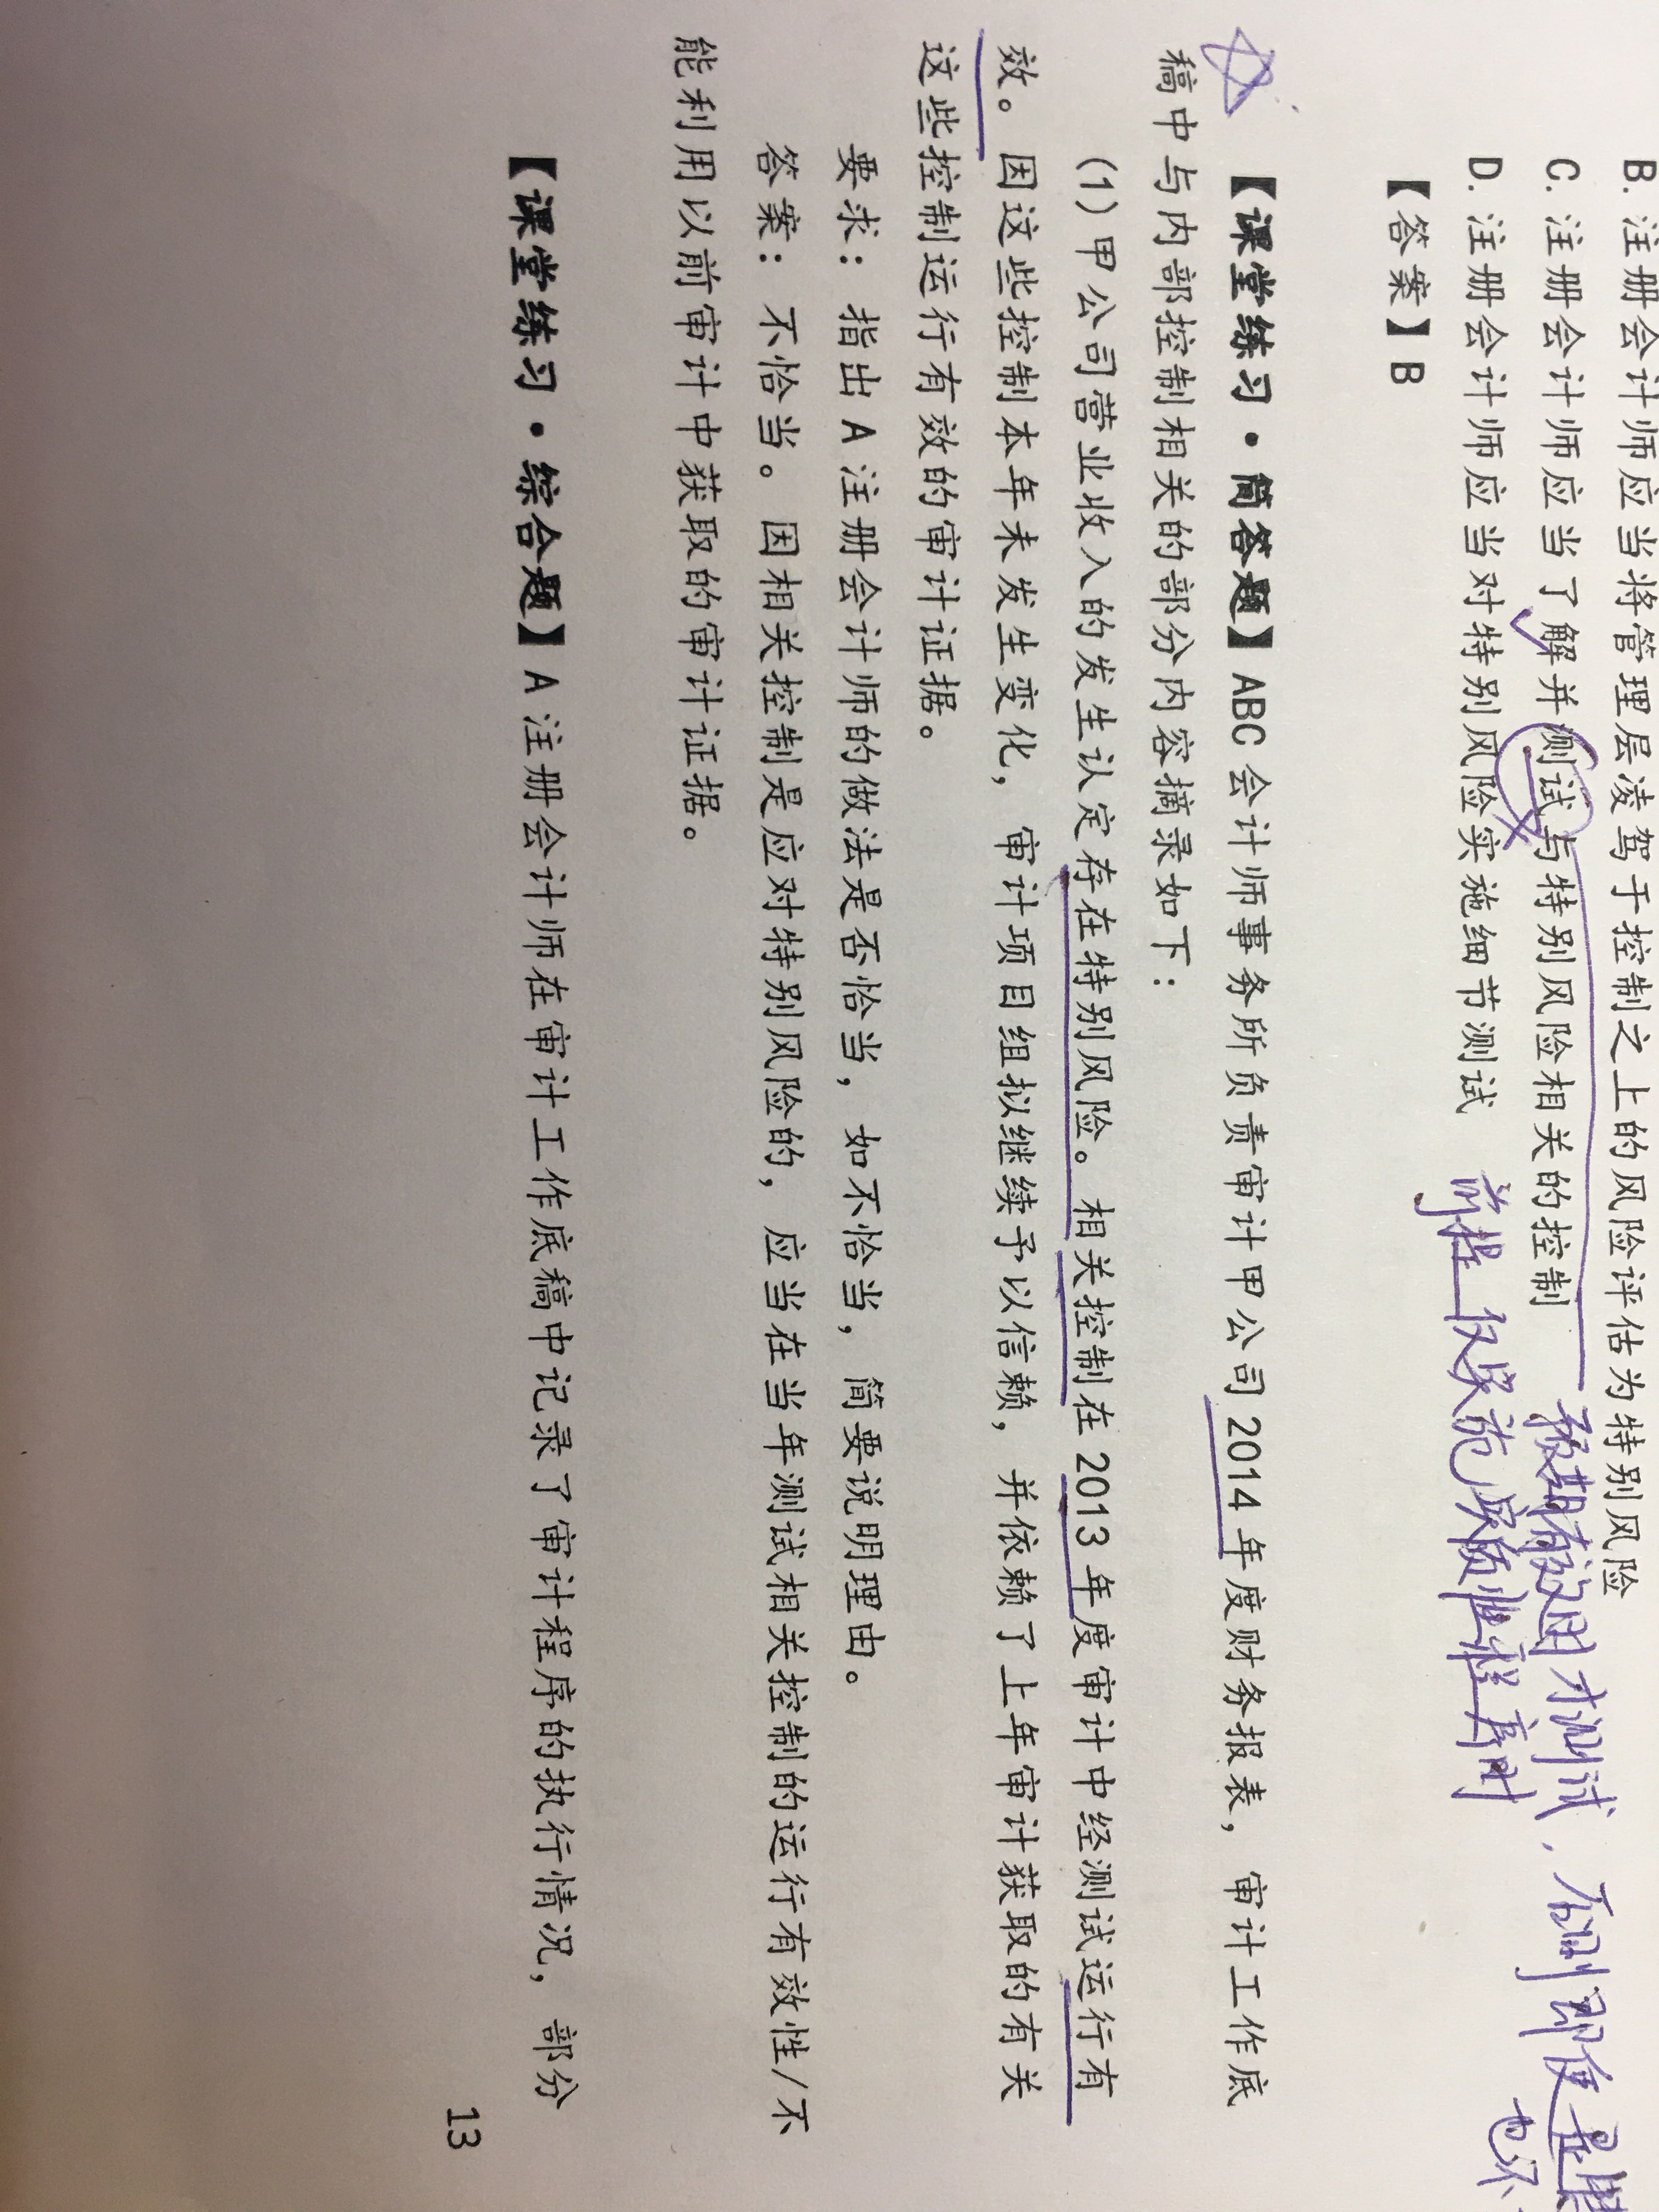 B. 注册会计师应当将管理层凌驾于控制之上的风险评估为特别风险
C. 注册会计师应当了解并测试与特别风险相关的控制
预期有效时才测试，否则即使是特
D. 注册会计师应当对特别风险实施细节测试
前提 仅实施实质性程序时
也不
【答案】B
【课堂练习·简答题】ABC 会计师事务所负责审计甲公司 2014 年度财务报表，审计工作底
稿中与内部控制相关的部分内容摘录如下：
(1) 甲公司营业收入的发生认定存在特别风险。相关控制在 2013 年度审计中经测试运行有
效。因这些控制本年未发生变化，审计项目组拟继续予以信赖，并依赖了上年审计获取的有关
这些控制运行有效的审计证据。
要求：指出 A 注册会计师的做法是否恰当，如不恰当，简要说明理由。
答案：不恰当。因相关控制是应对特别风险的，应当在当年测试相关控制的运行有效性/不
能利用以前审计中获取的审计证据。
【课堂练习·综合题】A 注册会计师在审计工作底稿中记录了审计程序的执行情况，部分
13